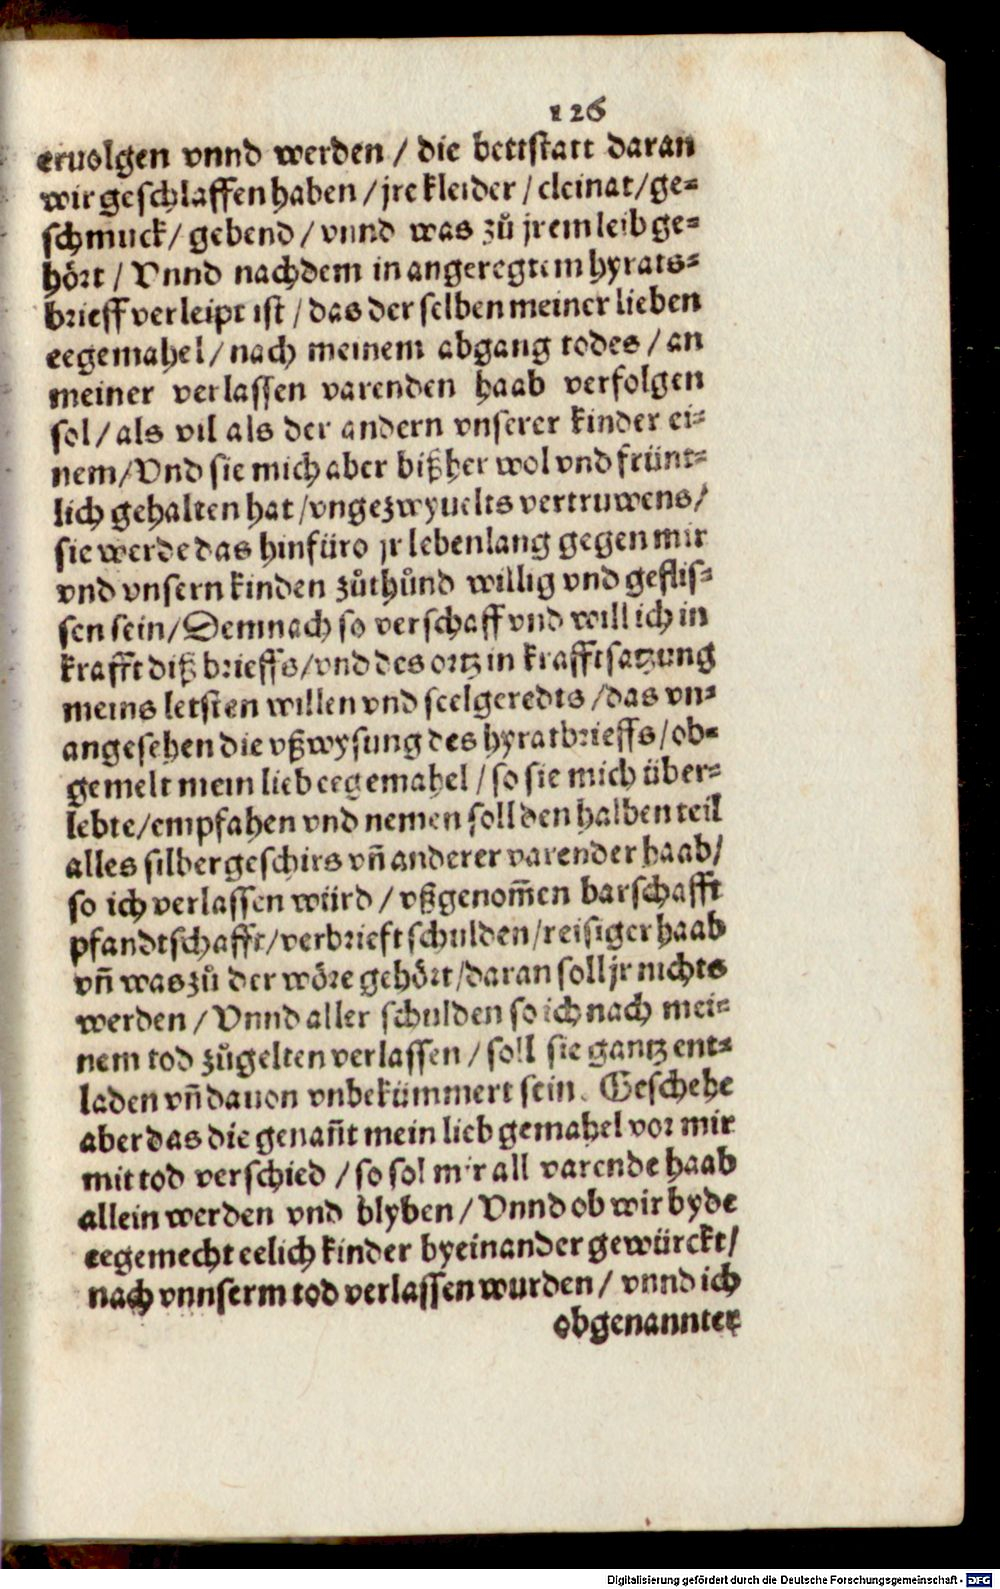 126
eruolgen vnnd werden / die bettstatt daran
wir geschlaffen haben / jre kleider / cleinat / ge⸗
schmuck / gebend / vnnd was zů jrem leib ge⸗
hört / Vnnd nachdem in angeregtem hyrats⸗
brieff verleipt ist / das der selben meiner lieben
eegemahel / nach meinem abgang todes / an
meiner verlassen varenden haab verfolgen
sol / als vil als der andern vnserer kinder ei⸗
nem / Vnd sie mich aber bißher wol vnd frünt⸗
lich gehalten hat / vngezwyuelts vertruwens /
sie werde das hinfüro jr lebenlang gegen mir
vnd vnsern kinden zůthůnd willig vnd geflis⸗
sen sein / Demnach so verschaff vnd will ich in
krafft diß brieffs / vnd des ortz in krafft satzung
meins letsten willen vnd seelgeredts / das vn⸗
angesehen die vßwysung des hyratbrieffs / ob⸗
gemelt mein lieb eegemahel / so sie mich über⸗
lebte / empfahen vnd nemen soll den halben teil
alles silbergeschirs vñ anderer varender haab /
so ich verlassen würd / vßgenom̃en barschafft
pfandtschafft / verbrieft schulden / reisiger haab
vñ was zů der wöre gehört / daran soll jr nichts
werden / Vnnd aller schulden so ich nach mei⸗
nem tod zůgelten verlassen / soll sie gantz ent⸗
laden vñ dauon vnbekümmert sein. Geschehe
aber das die genañt mein lieb gemahel vor mir
mit tod verschied / so sol mir all varende haab
allein werden vnd blyben / Vnnd ob wir byde
eegemecht eelich kinder byeinander gewürckt /
nach vnnserm tod verlassen wurden / vnnd ich
obgenannter
Digitalisierung gefördert durch die Deutsche Forschungsgemeinschaft - DFG